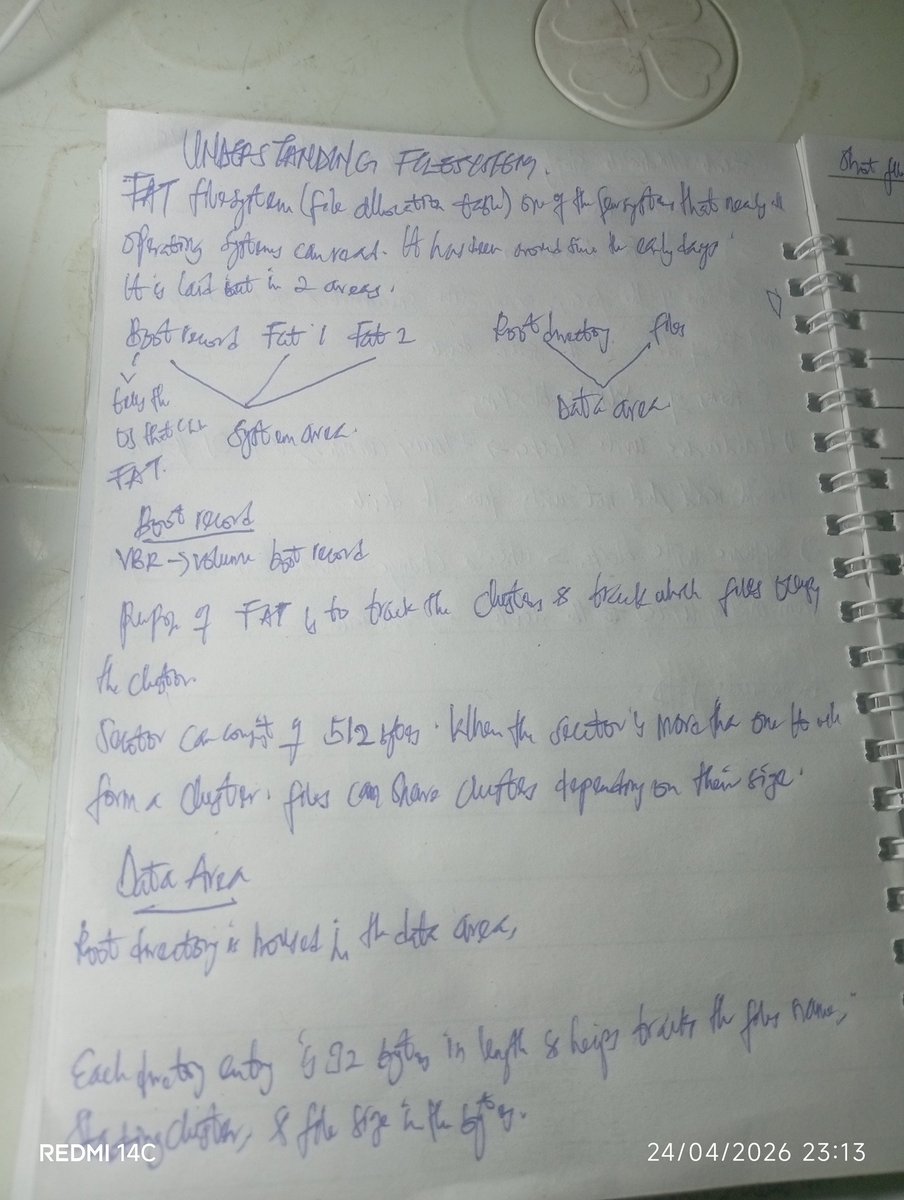 UNDERSTANDING FILESYSTEM.
Short
FAT filesystem (file allocation table) one of the few systems that nearly all
operating systems can read. It has been around since the early days
It is laid out in 2 areas.
Boot record Fat 1 Fat 2 Root directory files
tells the
OS that
FAT.
System area. Data area
Boot record
VBR → volume boot record
Purpose of FAT is to track the clusters & track which files occupy
the cluster.
Sector can consist of 512 bytes. When the sector is more than one it
form a cluster. files can share clusters depending on their size.
Data Area
Root directory is housed in the data area,
Each directory entry is 32 bytes in length & helps tracks the files name,
Starting cluster, & file size in the bytes.
REDMI 14C
24/04/2026 23:13